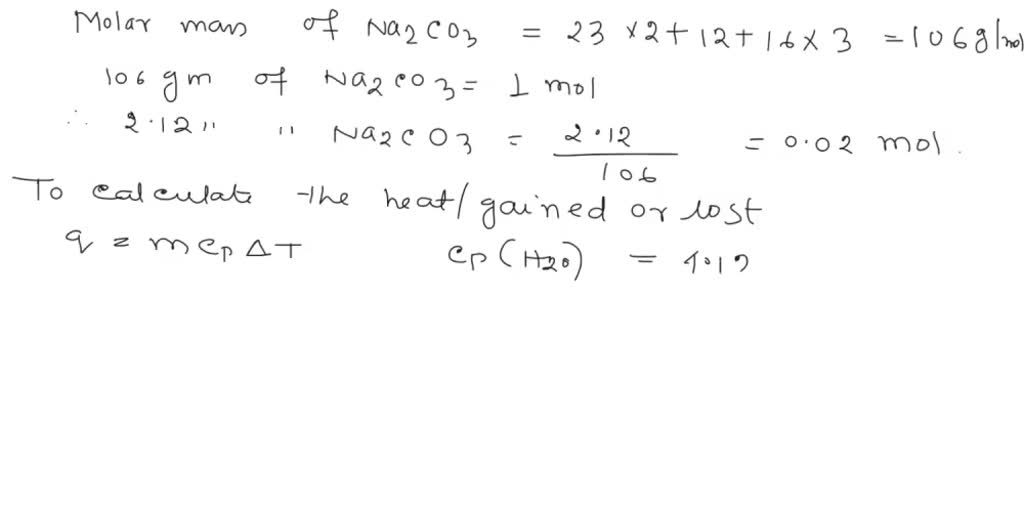 Molar mass of Na2CO3 = 23 × 2 + 12 + 16 × 3 = 106 g/mol
106 gm of Na2CO3 = 1 mol
∴ 2.12 " " Na2CO3 = 2.12/106 = 0.02 mol.
To calculate the heat/gained or lost
q = m Cp ΔT Cp (H2O) =